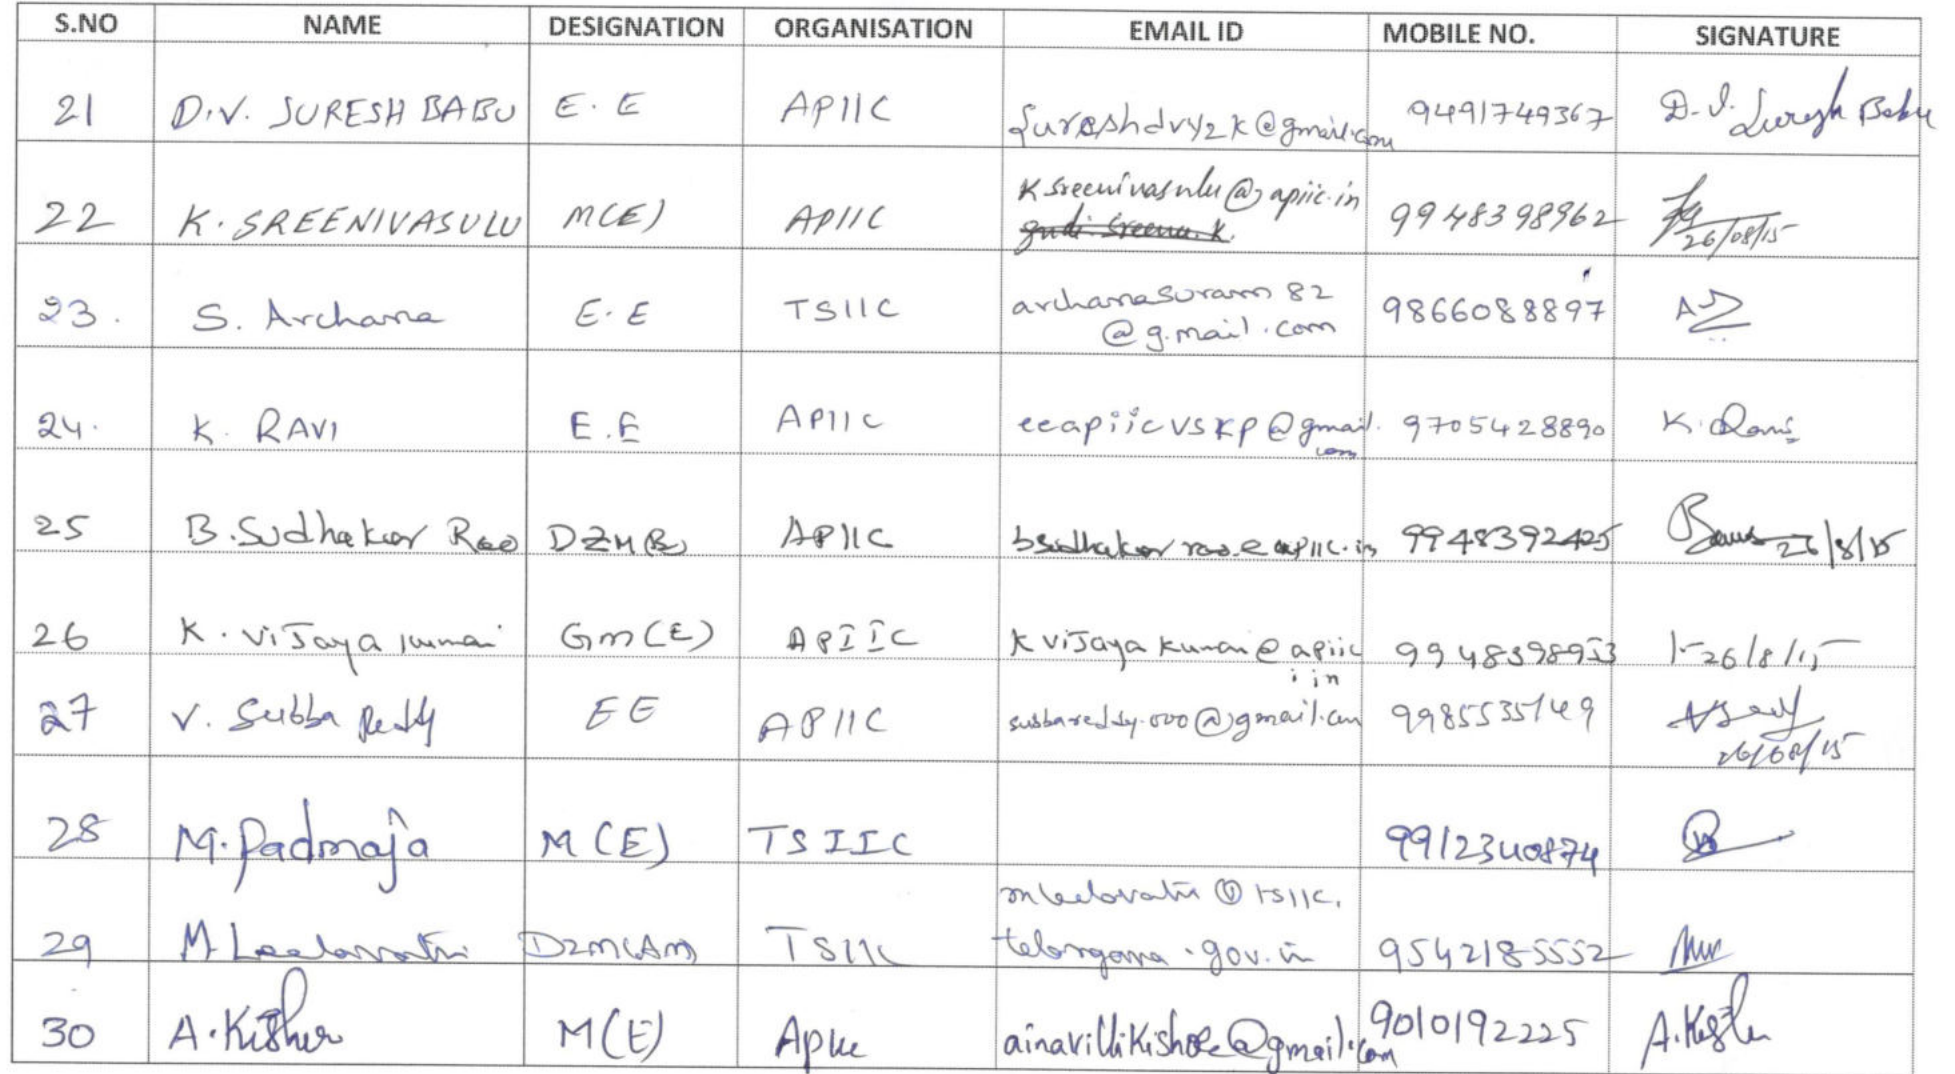 S.NO NAME DESIGNATION ORGANISATION EMAIL ID MOBILE NO. SIGNATURE
21 D.V. SURESH BABU E.E APIIC sureshdvy2k@gmail.com 9491749367 D.V. Suresh Babu
22 K. SREENIVASULU M(E) APIIC Ksreenivasulu@apiic.in 9948398962
26/08/15
23. S. Archana E.E TSIIC archanasuram82 9866088897
@g.mail.com
24. K. RAVI E.E APIIC eeapiicvskp@gmail. 9705428890 K. Ravi
com
25 B. Sudhakar Rao APIIC bsudhakar rao@apiic.in 9948392425 26/8/15
26 K. Vijaya kumar Gm(E) APIIC kvijaya kumar@apiic 9948398953 26/8/15
in
27 V. Subba Reddy EE APIIC subbareddy.000@gmail.com 9985535149
26/08/15
28 M. Padmaja M(E) TSIIC 9912340874
mleelavathi@TSIIC.
29 M Leelavathi DZM(AM) TSIIC telangana.gov.in 9542185552
30 A. Kishor M(E) Apiic ainavillikishore@gmail.com 9010192225 A. Kishor